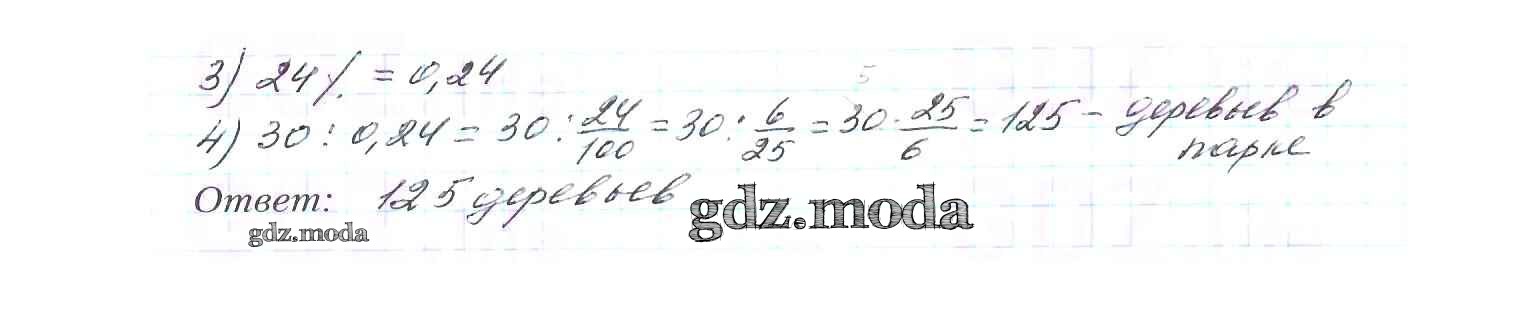 3) 24% = 0,24
4) 30 : 0,24 = 30 : 24/100 = 30 : 6/25 = 30 · 25/6 = 125 - деревьев в
парке
Ответ: 125 деревьев
gdz.moda
gdz.moda